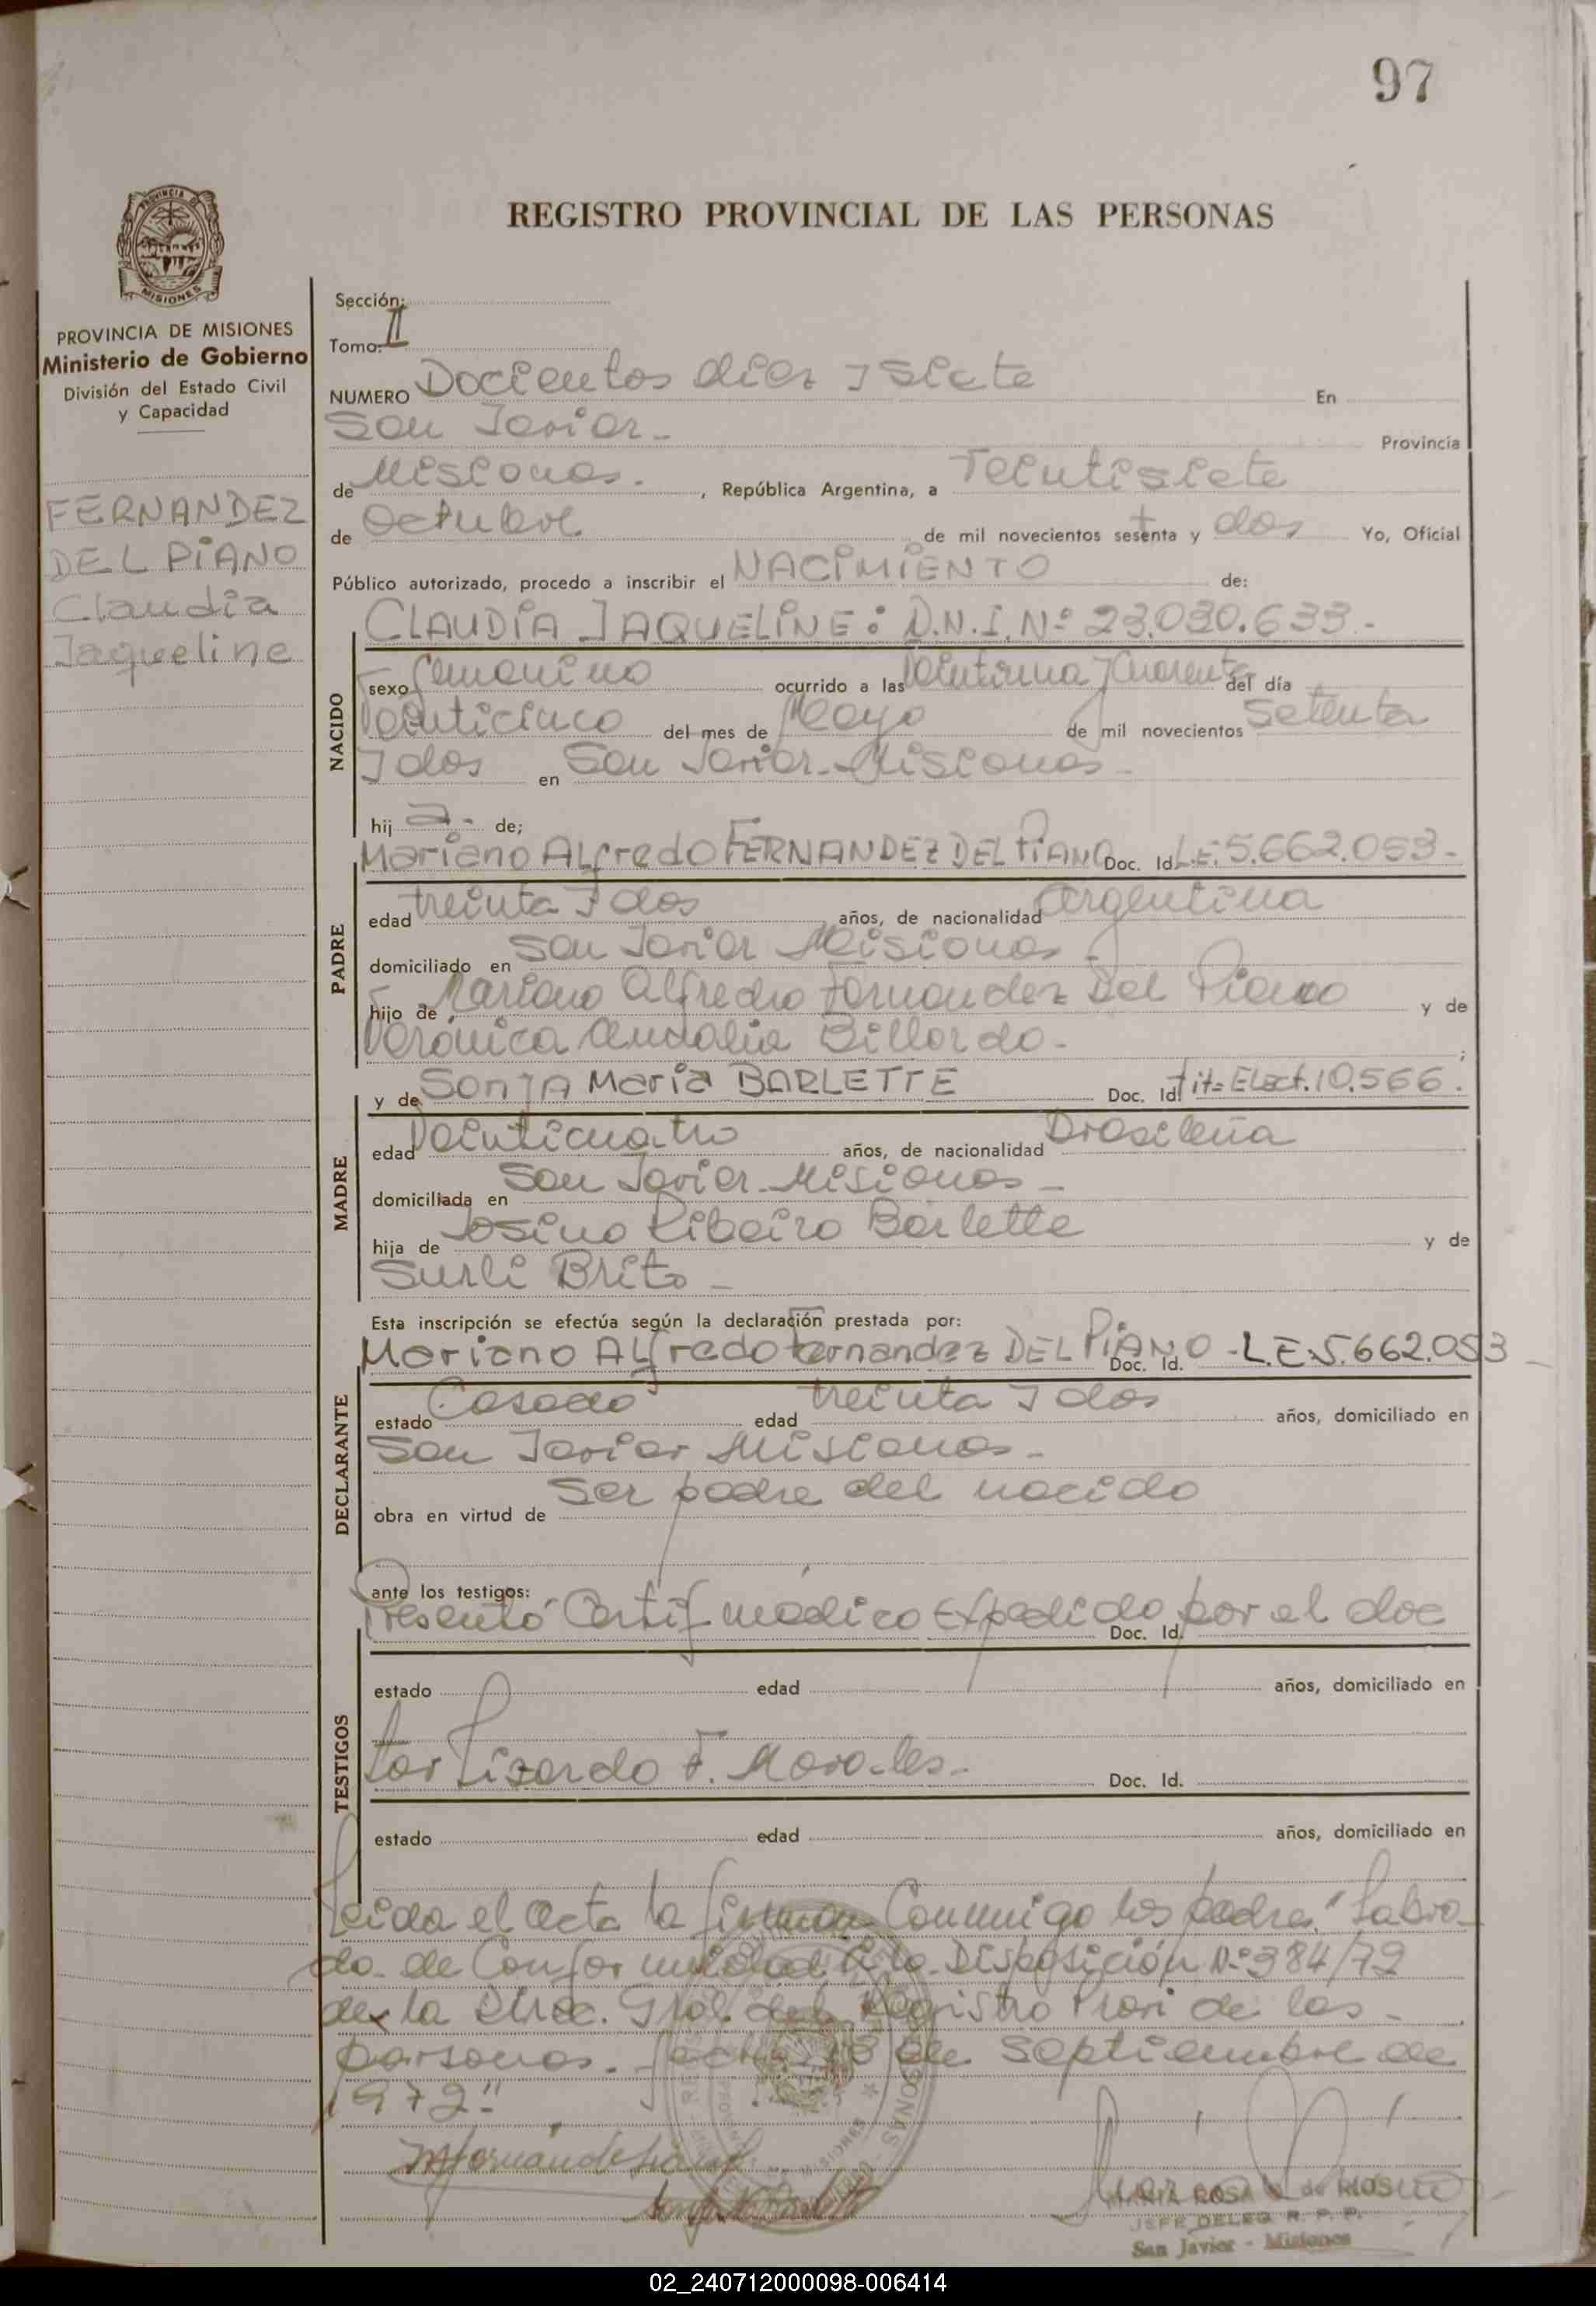 97
REGISTRO PROVINCIAL DE LAS PERSONAS
PROVINCIA DE MISIONES
Ministerio de Gobierno
División del Estado Civil
y Capacidad
FERNANDEZ
DEL PIANO
Claudia
Jaqueline
Sección:
Tomo: II
NUMERO Docientos diez y Siete En
San Javier - Provincia
de Misiones. , República Argentina, a Veintisiete
de Octubre de mil novecientos setenta y dos Yo, Oficial
Público autorizado, procedo a inscribir el NACIMIENTO de:
CLAUDIA JAQUELINE: D.N.I. Nº 23.030.633.-
NACIDO
sexo femenino ocurrido a las Veintiuna y Cuarenta del día
Veinticinco del mes de Mayo de mil novecientos Setenta
y dos en San Javier - Misiones -
hij a. de;
Mariano Alfredo FERNANDEZ DEL PIANO Doc. Id. L.E. 5.662.053.-
PADRE
edad treinta y dos años, de nacionalidad argentina
domiciliado en San Javier Misiones -
hijo de Mariano Alfredo Fernandez Del Piano y de
Verónica Amalia Billordo. ;
y de SONJA Maria BARLETTE Doc. Id. Tit= Elect. 10.566.
MADRE
edad Veinticuatro años, de nacionalidad Brasileña
domiciliada en San Javier - Misiones -
hija de Osino Ribeiro Barlette y de
Surli Brito -
Esta inscripción se efectúa según la declaración prestada por:
Mariano Alfredo Fernandez DEL PIANO - Doc. Id. L.E. 5.662.053
DECLARANTE
estado Casado edad treinta y dos años, domiciliado en
San Javier Misiones -
obra en virtud de Ser padre del nacido
ante los testigos:
Presentó Certif medico Expedido por el doc Doc. Id.
TESTIGOS
estado edad años, domiciliado en
tor Lizardo F. Morales - Doc. Id.
estado edad años, domiciliado en
Leida el acta la firman Conmigo los padres. "Labra
do de Conformidad a la Disposición Nº 384/72
de la Direc. Gral. del Registro Provi de las
personas. fecha 18 de Septiembre de
1972"
MARIA ROSA de RIOS
JEFE DELEG R. P. P.
San Javier - Misiones
02_240712000098-006414